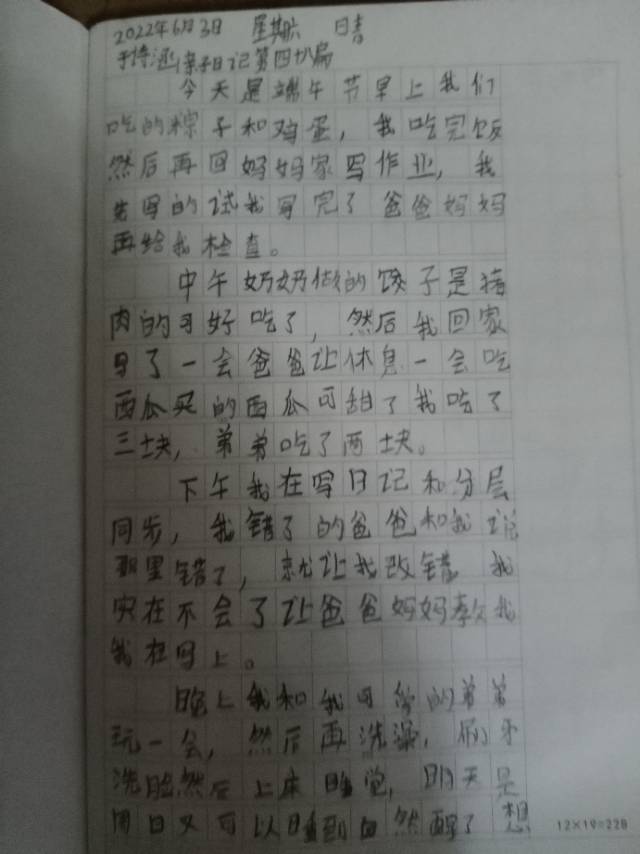 2022年6月3日 星期六 日晴
于诗涵亲子日记第四十八篇
今天是端午节早上我们
吃的粽子和鸡蛋，我吃完饭
然后再回妈妈家写作业，我
先写的试我写完了爸爸妈妈
再给我检查。
中午奶奶做的饺子是猪
肉的可好吃了，然后我回家
写了一会爸爸让休息一会吃
西瓜买的西瓜可甜了我吃了
三块，弟弟吃了两块。
下午我在写日记和分层
同步，我错了的爸爸和我说
那里错了，就让我改错我
实在不会了让爸爸妈妈教我
我在写上。
晚上我和我可爱的弟弟
玩一会，然后再洗澡，刷牙
洗脸然后上床睡觉，明天是
周日又可以睡到自然醒了想
12×19=228